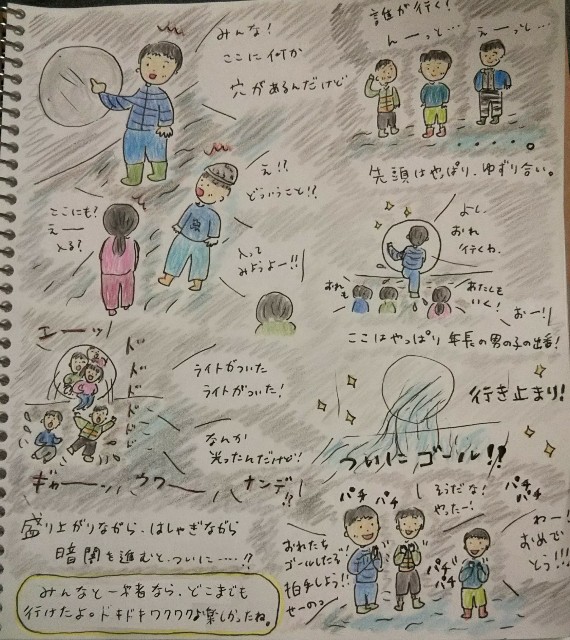 みんな!
ここに何か
穴があるんだけど
え!?
どういうこと!?
ここにも?
えーー
入る?
入って
みようよー!!
誰が行く!
んーっと…
えーっと…
先頭はやっぱり、ゆずり合い。
よし、
おれ
行くわ、
おれも
あたしも
いく!
おー!!
ここはやっぱり年長の男の子の出番!
エーーッ!
ドドドドドドド
ライトがついた
ライトがついた!
なんか
光ったんだけど!
ギャーーン、ウワーーハ
ナンデ!?
行き止まり!
ついにゴール!!
盛り上がりながら、はしゃぎながら
暗闇を進むと、ついに……?
みんなと一緒なら、どこまでも
行けたよ。ドキドキワクワクお楽しかったね。
パチ パチ
そうだな!
やったー!
パチ パチ
おれたち
ゴールしたぞ!
拍手しよう!!
せーの。
パチ パチ
わー!
おめで
とう!!!